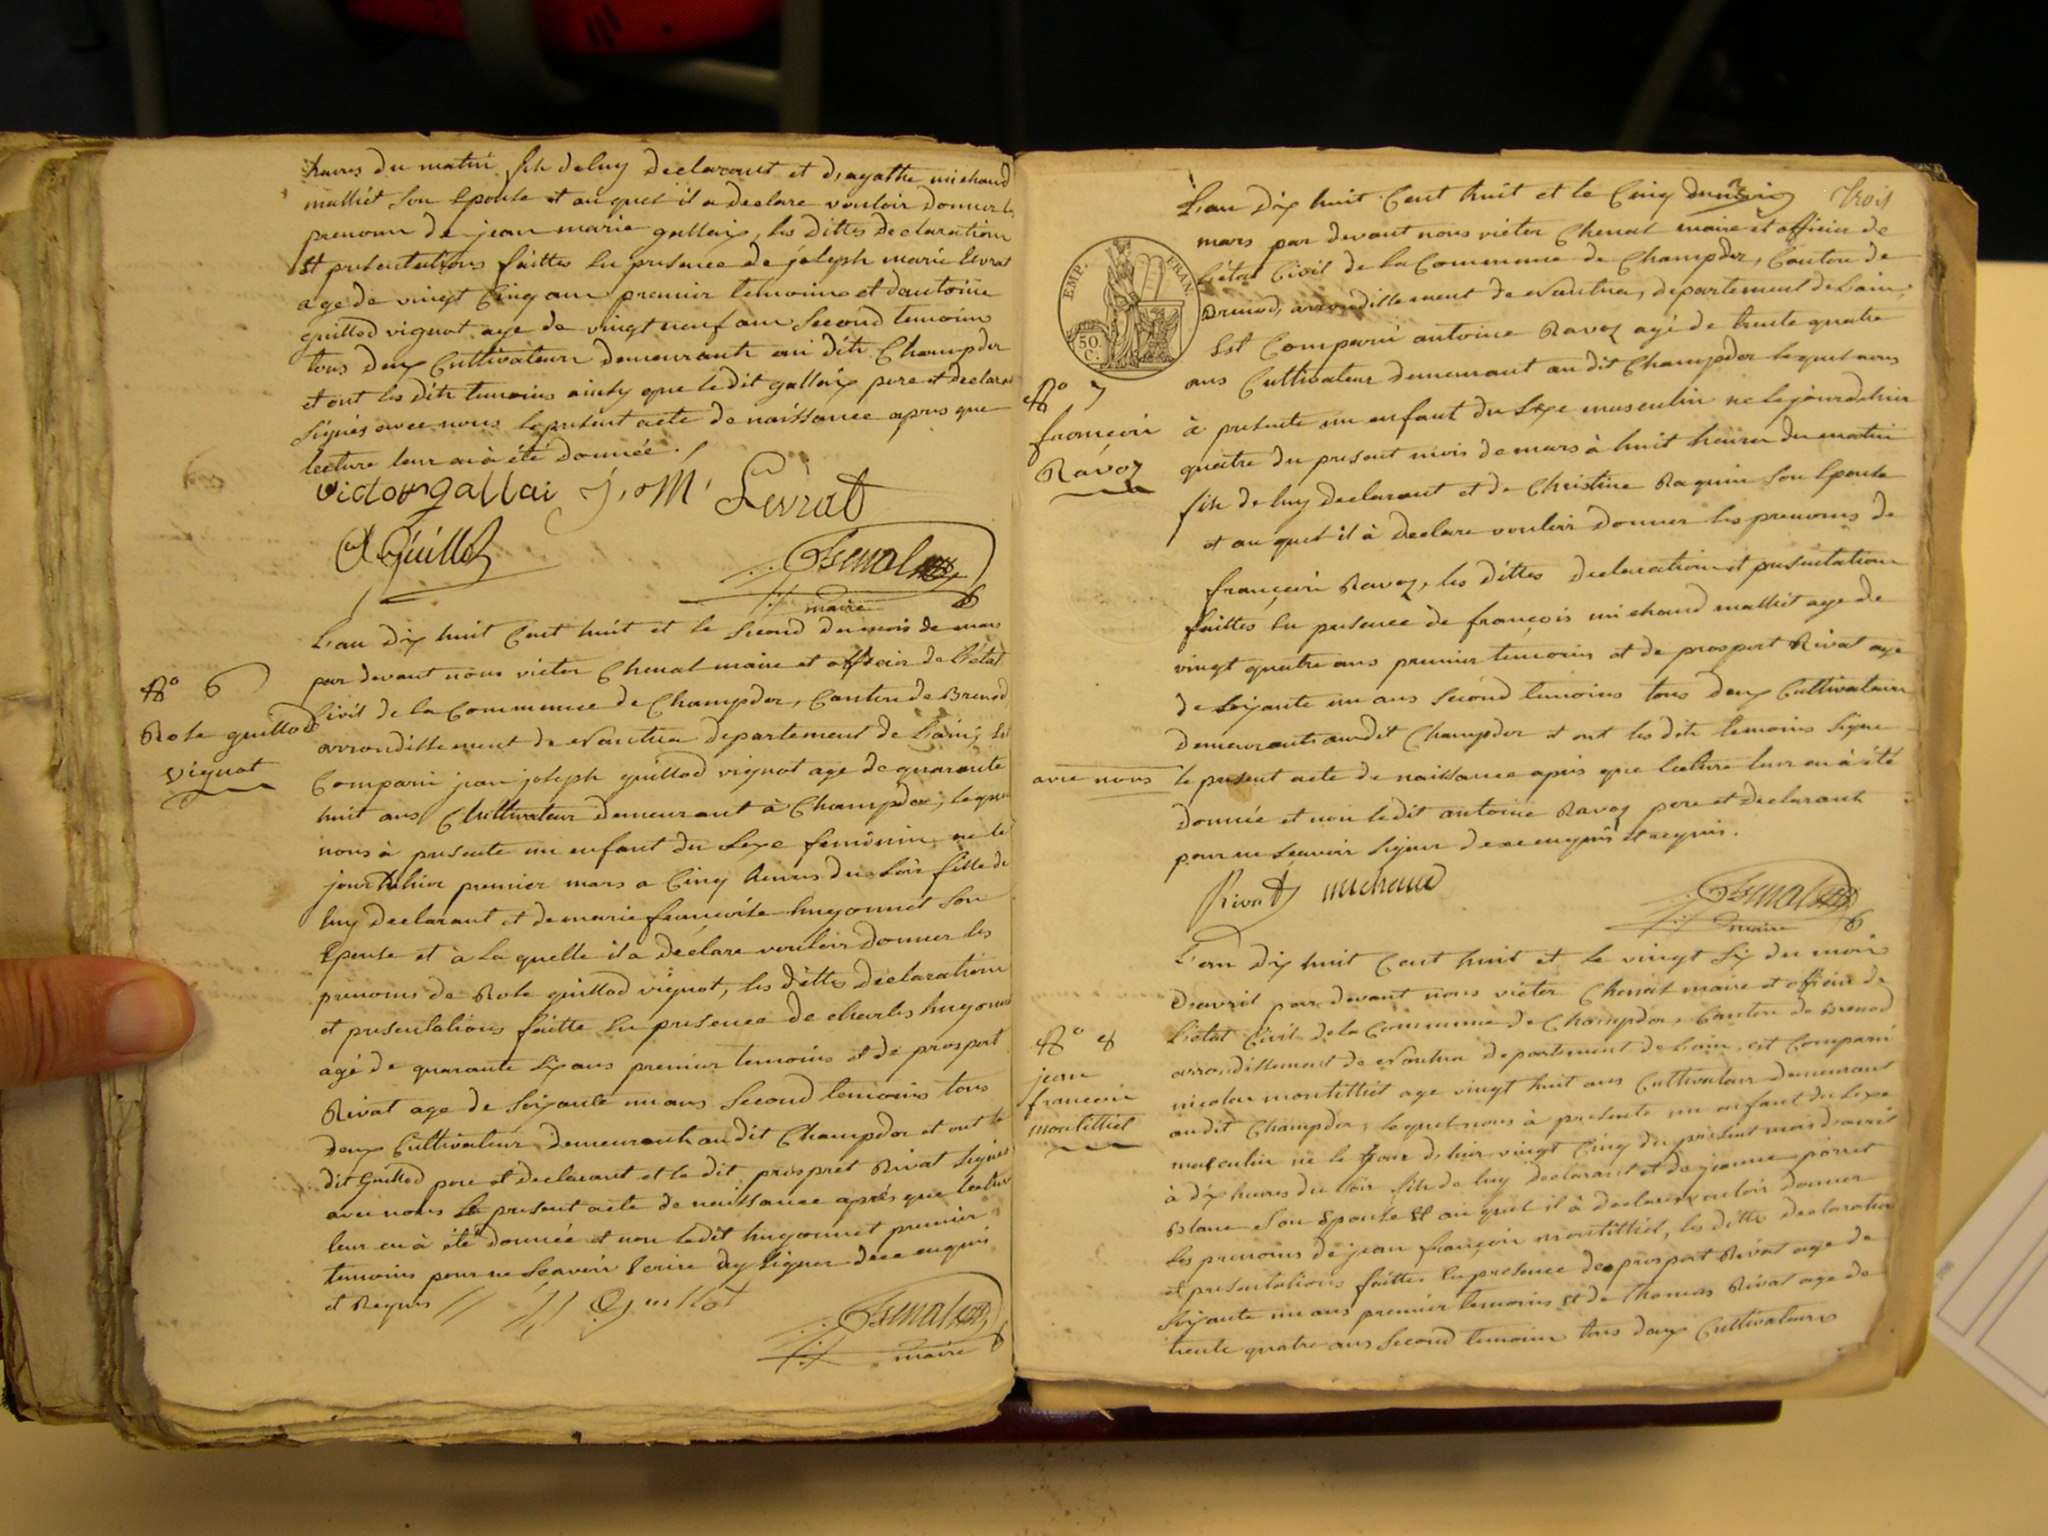 heures du matin fils de luy declarant et d'agathe michaud
malliet son Epouse et auquel il a declare vouloir donner le
prenom de jean marie gallaix, les dittes declaration
et presentations faittes en presence de joseph marie levrat
age de vingt cinq ans premier temoins et d'antoine
guillod vignat age de vingt neuf ans second temoins
tous deux Cultivateurs demeurants au dit Champdor
et ont les dits temoins ainsy que le dit gallaix pere et declarant
signés avec nous le present acte de naissance apres que
lecture leur en à été donnée.
victor gallai j. M. Levrat
A Guillot Chenal
maire
L'an dix huit Cent huit et le second du mois de mars
par devant nous victor Chenal maire et officier de L'état
Civil de la Commune de Champdor, Canton de Brenod,
arrondissement de Nantua departement de L'ain, Est
Comparu jean joseph guillod vignat age de quarante
huit ans Cultivateur demeurant à Champdor, lequel
nous à presente un enfant du sexe feminin, ne le
jour d'hier premier mars a Cinq heures du soir fille de
luy declarant et de marie françoise hugonnet son
Epouse et à la quelle il a declare vouloir donner les
prenoms de Rose guillod vignat, les dittes declaration
et presentations faitte en presence de charles hugonnet
agé de quarante six ans premier temoins et de prospert
Rivat age de soixante un ans second temoins tous
deux Cultivateurs demeurants au dit Champdor et ont le
dit Guillod pere et declarant et le dit prospret Rivat signés
avec nous Le present acte de naissance après que lecture
leur en à été donnée et non ledit hugonnet premier
temoins pour ne sçavoir Ecrire ny signer de ce enquis
et Requis J J Guillot
Chenal
maire
No 6
Rose guillod
vignat
Trois
L'an dix huit Cent huit et le Cinq du mois
mars par devant nous victor Chenal maire et officier de
L'état Civil de la Commune de Champdor, Canton de
Brenod, arrondissement de Nantua, departement de L'ain,
Est Comparu antoine Ravoz agé de trente quatre
ans Cultivateur demeurant au dit Champdor lequel nous
à presente un enfant du sexe masculin ne le jour d'hier
quatre du present mois de mars à huit heures du matin
fils de luy declarant et de Christine Raquin son Epouse
et au quel il à declare vouloir donner les prenoms de
françois Ravoz, les dittes declaration et presentation
faittes en presence de françois michaud malliet age de
vingt quatre ans premier temoins et de prospert Rivat age
de soixante un ans second temoins tous deux Cultivateurs
demeurants audit Champdor et ont les dits temoins signe
avec nous le present acte de naissance après que lecture leur en à été
donnée et non ledit antoine Ravoz pere et declarant
pour ne sçavoir signer de ce enquis et requis.
Rivat michaud
Chenal
maire
L'an dix huit Cent huit et le vingt six du mois
d'avril par devant nous victor Chenal maire et officier de
L'état Civil de la Commune de Champdor, Canton de Brenod
arrondissement de Nantua departement de L'ain, est Comparu
nicolas montilliet age vingt huit ans Cultivateur demeurant
au dit Champdor, lequel nous à presente un enfant du sexe
masculin ne le jour d'hier vingt Cinq du present mois d'avril
à dix heures du soir fils de luy declarant et de jeanne perret
Blanc son Epouse Et au quel il à declare vouloir donner
Les prenoms de jean françois montilliet, les ditte declaration
et presentations faittes en presence de prospert Rivat age de
soixante un ans premier temoins et de thomas Rivat age de
trente quatre ans second temoins tous deux Cultivateurs
EMP. FRAN.
50
C.
No 7
françois
Ravoz
No 8
jean
françois
montilliet